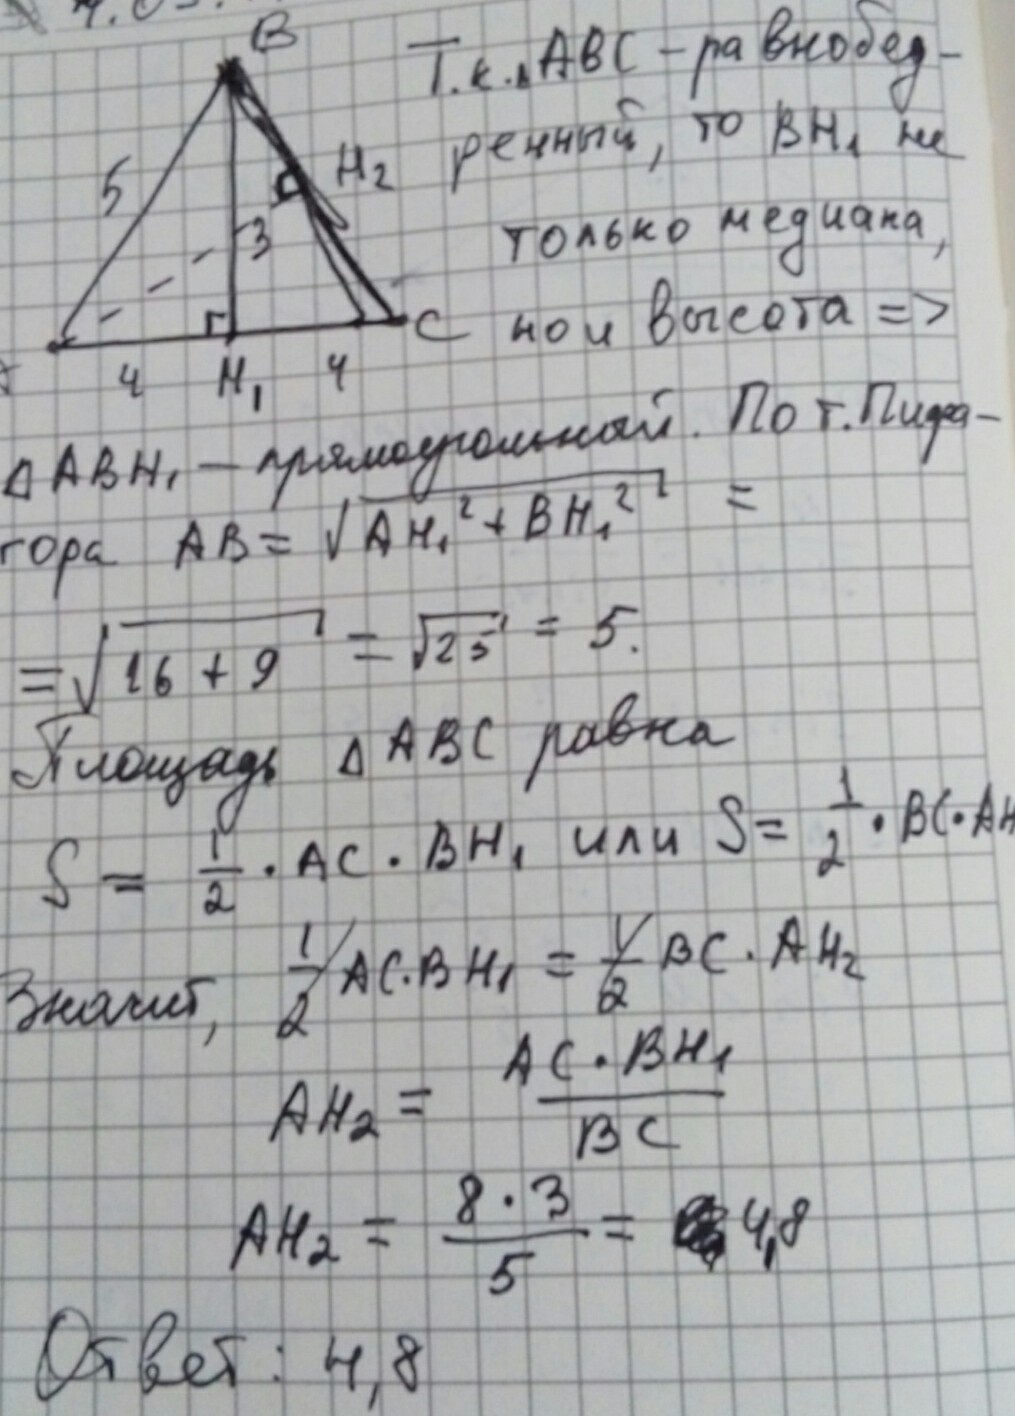 B
Т.к. △ABC – равнобед-
5
H₂
ренный, то BH₁ не
3
только медиана,
C
но и высота =>
4 H₁ 4
△ABH₁ – прямоугольный. По т. Пифа-
гора AB = √(AH₁² + BH₁²) =
= √(16 + 9) = √25 = 5.
Площадь △ABC равна
S = 1/2 · AC · BH₁ или S = 1/2 · BC · AH
Значит, 1/2 AC · BH₁ = 1/2 BC · AH₂
AH₂ = AC · BH₁ / BC
AH₂ = 8 · 3 / 5 = 4,8
Ответ: 4,8